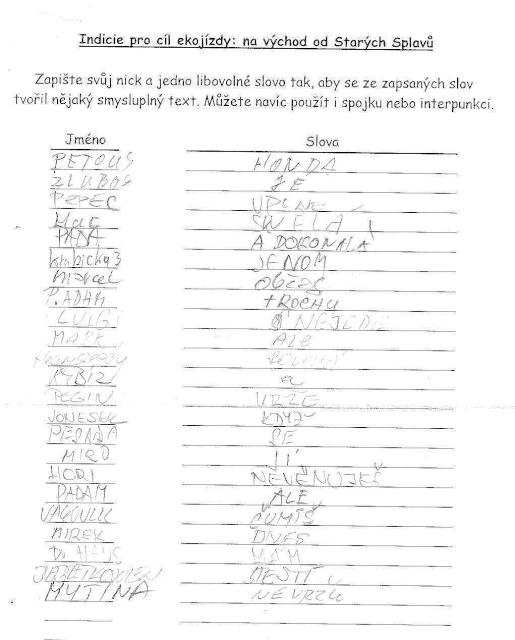 Indicie pro cíl ekojízdy: na východ od Starých Splavů
Zapište svůj nick a jedno libovolné slovo tak, aby se ze zapsaných slov
tvořil nějaký smysluplný text. Můžete navíc použít i spojku nebo interpunkci.
Jméno Slova
PETOUS HONDA
ZLUBOS JE
PEPEC ÚPLNĚ
Mac SKVĚLÁ
PAĎA A DOKONALÁ
krabicka3 JENOM
marcel občas
P.ADAM tROCHU
LUIGI NEJEDE
MARK ALE
a
PEGIN VRŽE
JONESEK KDYŽ
PESADA SE
MIRO JÍ
HORI NEVĚNUJEŠ
PADAM ALE
ČUMÍŠ
MIREK DNES
Dr. HAUS MÁM
ŠTĚSTÍ
MYTINA NEVRŽU